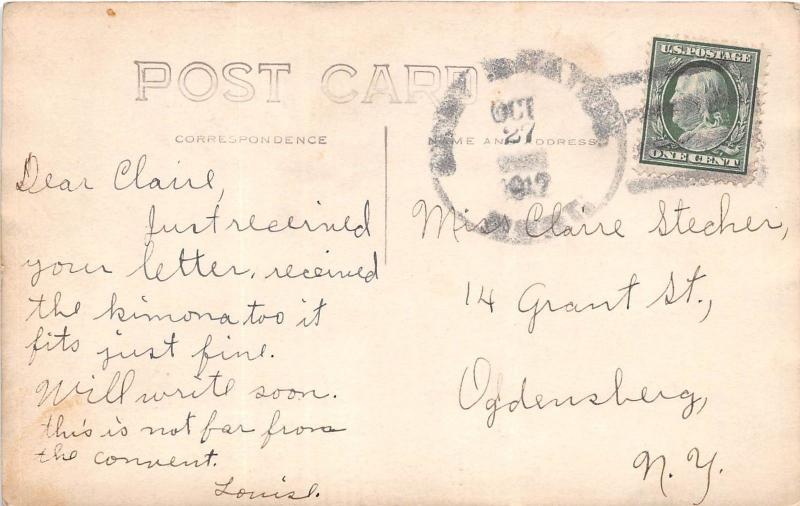 POST CARD
CORRESPONDENCE
NAME AND ADDRESS
U.S. POSTAGE
ONE CENT
OCT
27
Dear Claire,
Just received
your letter, received
the kimona too it
fits just fine.
Will write soon.
this is not far from
the convent.
Louise.
Miss Claire Stecher,
14 Grant St.,
Ogdensberg,
N.Y.